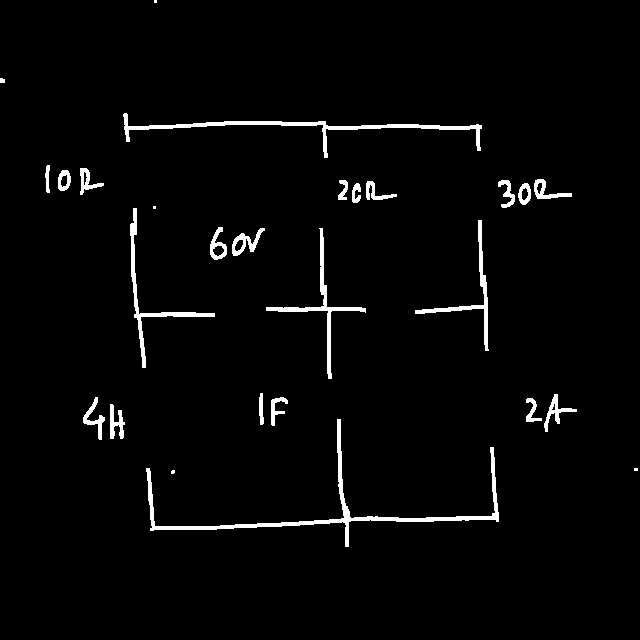 10Ω
20Ω
30Ω
60V
4H
1F
2A